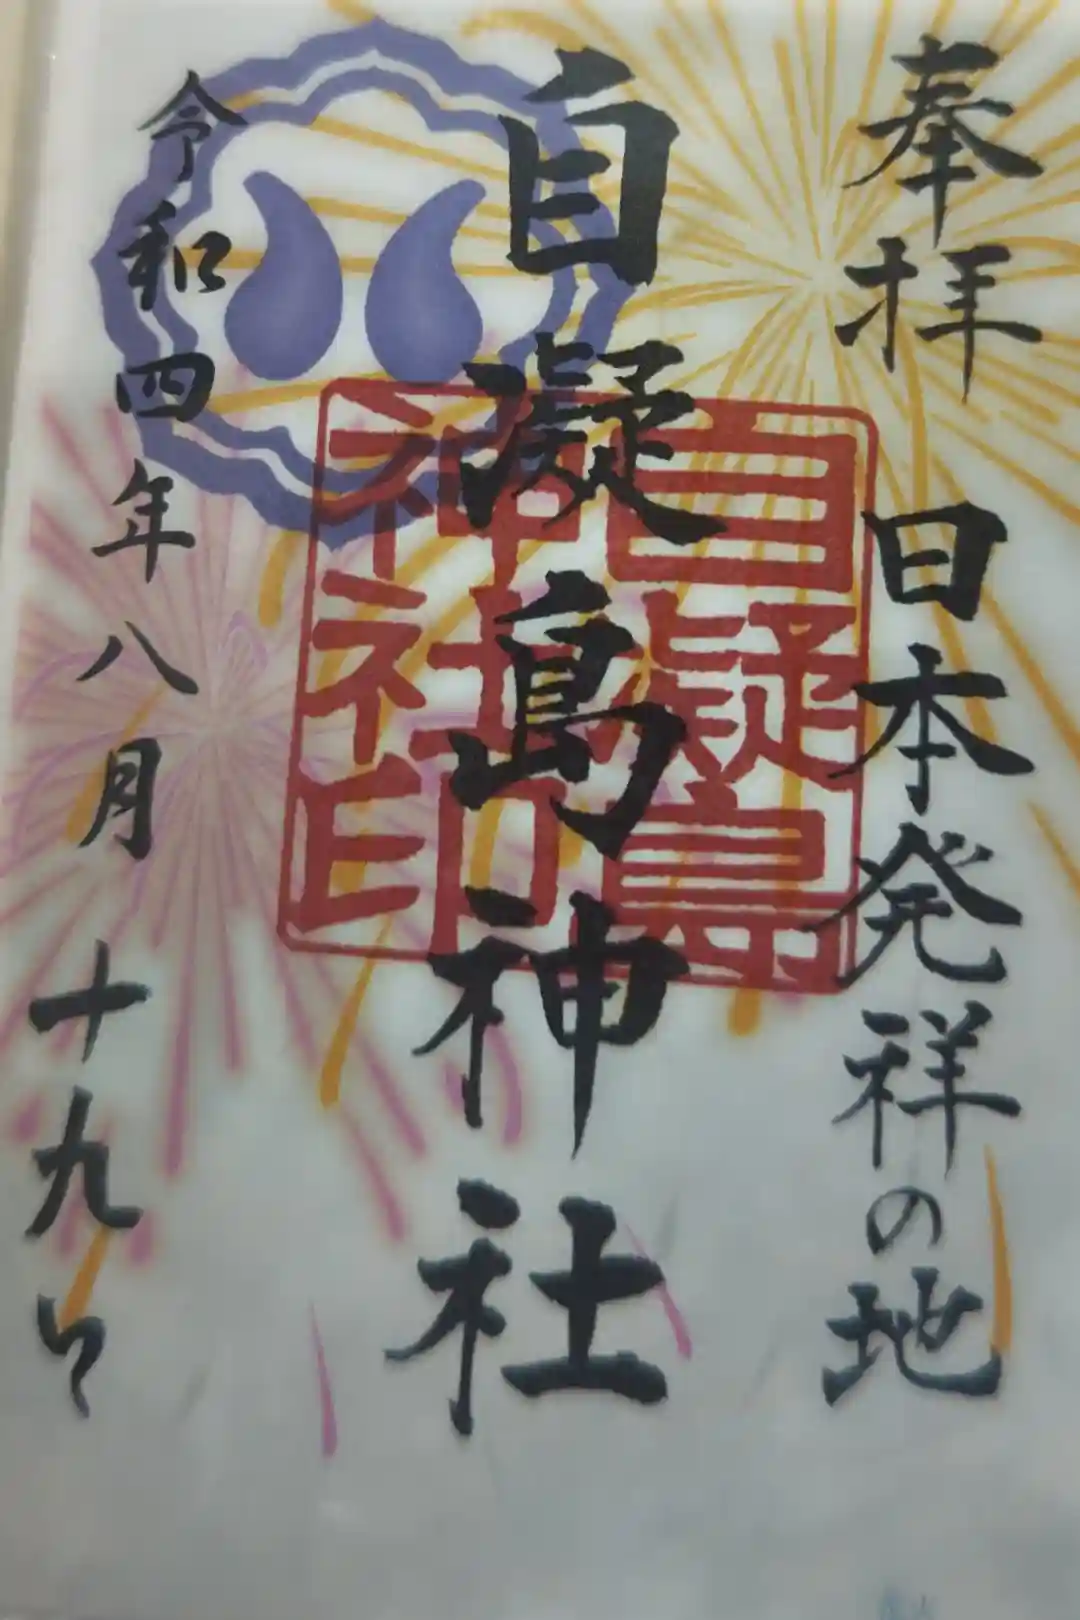 奉拝 日本発祥の地
自凝島神社
自凝島
神社印
令和四年八月十九日